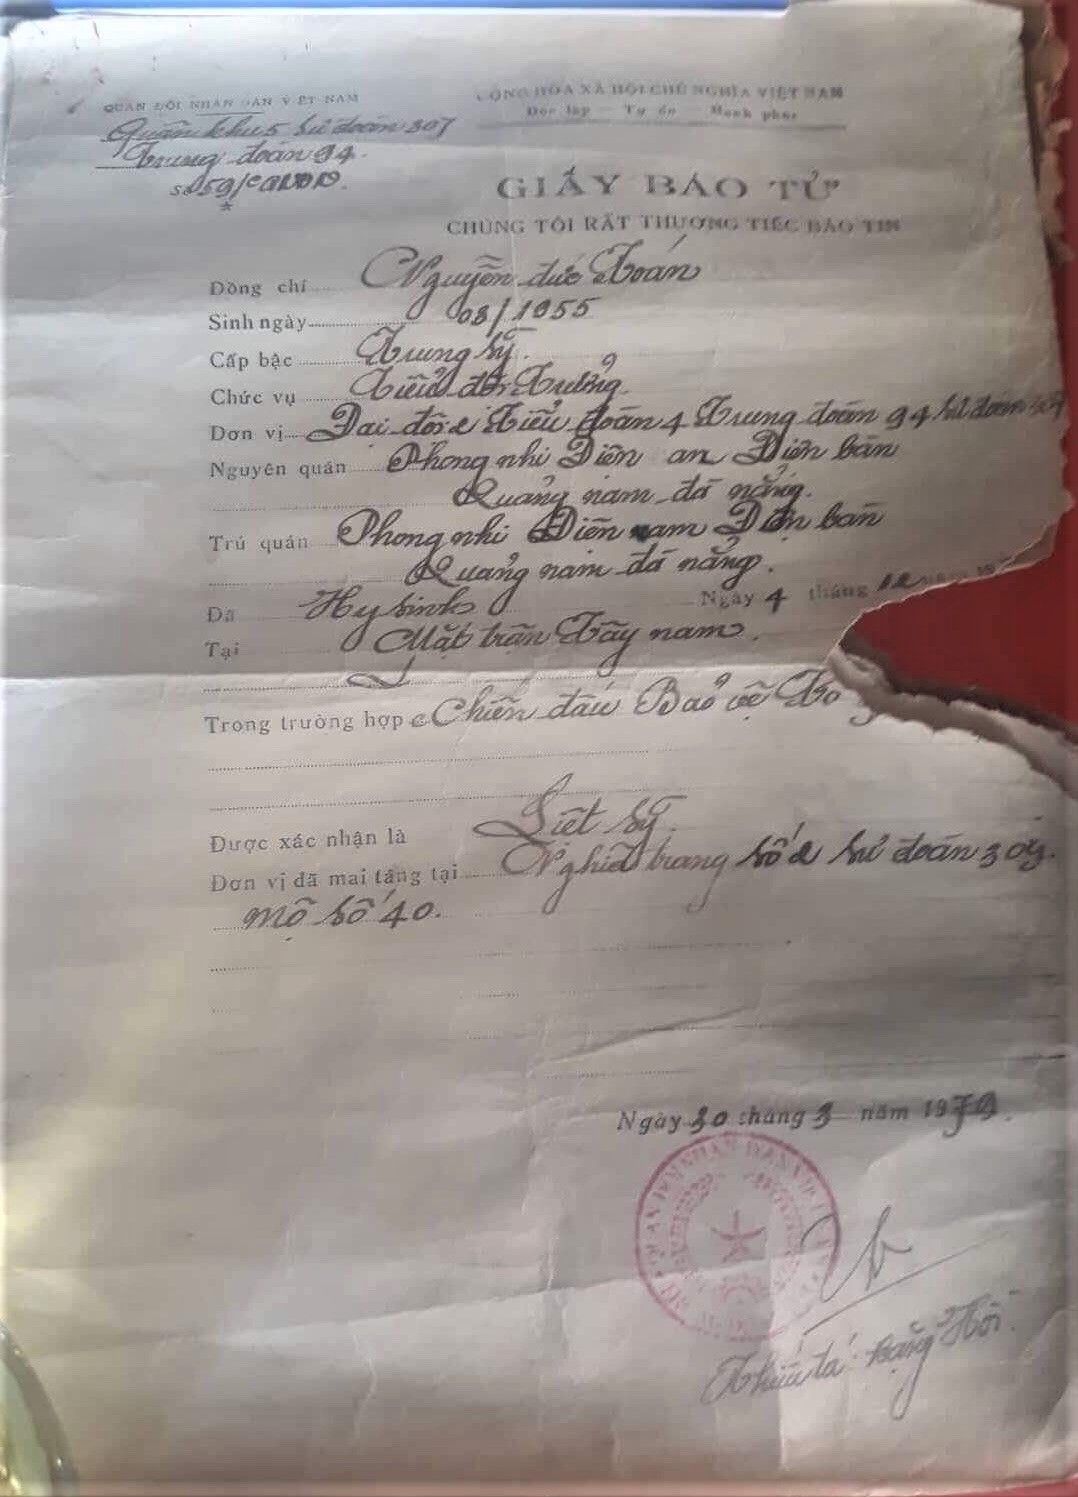 QUÂN ĐỘI NHÂN DÂN VIỆT NAM
Quân khu 5 sư đoàn 307
Trung đoàn 94
CỘNG HÒA XÃ HỘI CHỦ NGHĨA VIỆT NAM
Độc lập — Tự do — Hạnh phúc
GIẤY BÁO TỬ
CHÚNG TÔI RẤT THƯƠNG TIẾC BÁO TIN
Đồng chí Nguyễn đức Toán
Sinh ngày 08/1955
Cấp bậc Trung sỹ.
Chức vụ Tiểu đội Trưởng
Đơn vị Đại đội 2 Tiểu đoàn 4 Trung đoàn 94 sư đoàn 307
Nguyên quán Phong nhi Điện an Điện bàn
Quảng nam đà nẵng.
Trú quán Phong nhi Điện nam Điện bàn
Quảng nam đà nẵng.
Đã Hy sinh Ngày 4 tháng 12 năm 19
Tại Mặt trận Tây nam.
Trong trường hợp Chiến đấu Bảo vệ Tổ
Được xác nhận là Liệt sỹ.
Đơn vị đã mai táng tại Nghĩa trang số 2 sư đoàn 307.
mộ số 40.
Ngày 30 tháng 3 năm 1979.
QUÂN ĐỘI NHÂN DÂN VIỆT NAM
Thiếu tá